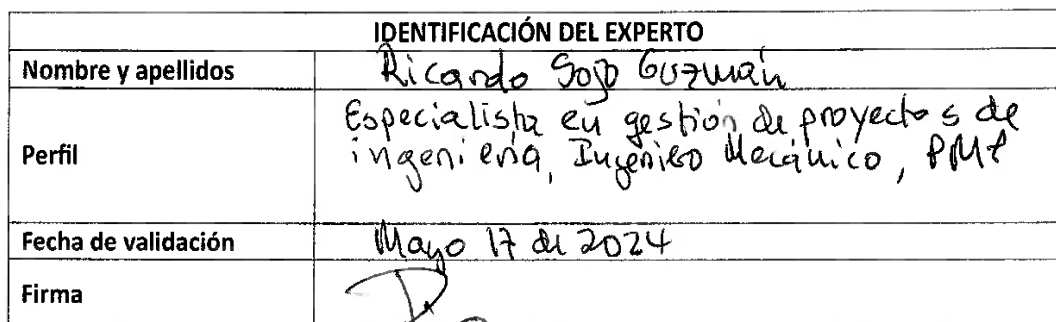 IDENTIFICACIÓN DEL EXPERTO
Nombre y apellidos Ricardo Sojo Guzmán
Especialista en gestión de proyectos de
Perfil ingeniería, Ingeniero Mecánico, PMP
Fecha de validación Mayo 17 de 2024
Firma